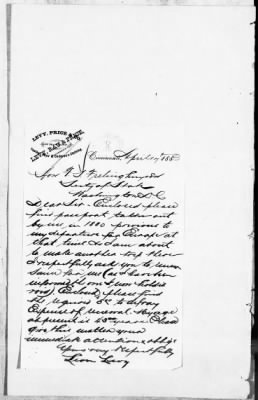 LEVY, PRICE &
Cincinnati, April 10th 188
Hon F. T. Frelinghuysen
Secty of State
Washington D.C.
Dear Sir - Enclosed please
find passport taken out
by me in 1880 previous to
my departure for Europe at
that time & I am about
to make another trip there
I respectfully ask you to renew
same for me (as I have been
informed
) Enclosed please find
the required to defray
Expense of renewal. My age
at present is years. Please
give this matter your
immediate attention & oblige
Yours very Respectfully
Leon Levy